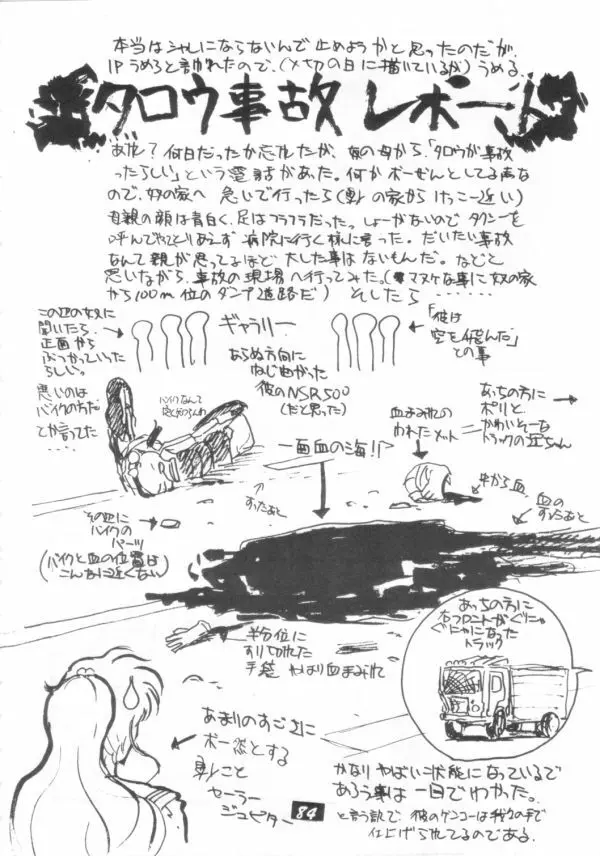 本当はシャレにならないんで止めようかと思ったのだが、
1Pうめろと言われたので、(〆切の日に描いているが)うめる。
タロウ事故レポート
あれ?何日だったか忘れたが、奴の母から、「タロウが事故
ったらしい」という電話があった。何かボーぜんとしてる声な
ので、奴の家へ急いで行ったら(の家からけっこー近い)
母親の顔は青白く、足はフラフラだった。しょーがないのでタクシーを
呼んでやってとりあえず病院に行く様に言った。だいたい事故
なんて親が思ってるほど大した事はないもんだ。などと
思いながら、事故の現場へ行ってみた。(マヌケな事に奴の家
から100m位のダンプ道路だ) そしたら……
この辺の奴に
聞いたら、
正面から
ぶつかっていった
らしい。
悪いのは
バイクの方だ
とか言ってた
ギャラリー
「彼は
空を飛んだ」
との事
あらぬ方向に
ねじまがった
彼のNSR500
(だと思った)
バイクなんて
血まみれの
われたメット
あっちの方に
ポリと
かわいそーな
トラックの運ちゃん
一面血の海!!
中から血
血の
すりあと
すったあと
その辺に
バイクの
パーツ
(バイクと血の位置は
こんなに近くない)
半分位に
すり切れた
手袋 やはり血まみれ
あっちの方に
右フロントがぐにゃ
ぐにゃになった
トラック
あまりのすごさに
ボー然とする
こと
セーラー
ジュピター
84
かなりやばい状態になっているで
あろう事は一目でわかった。
と言う訳で、彼のゲンコーは我々の手で
仕上げられてるのである。